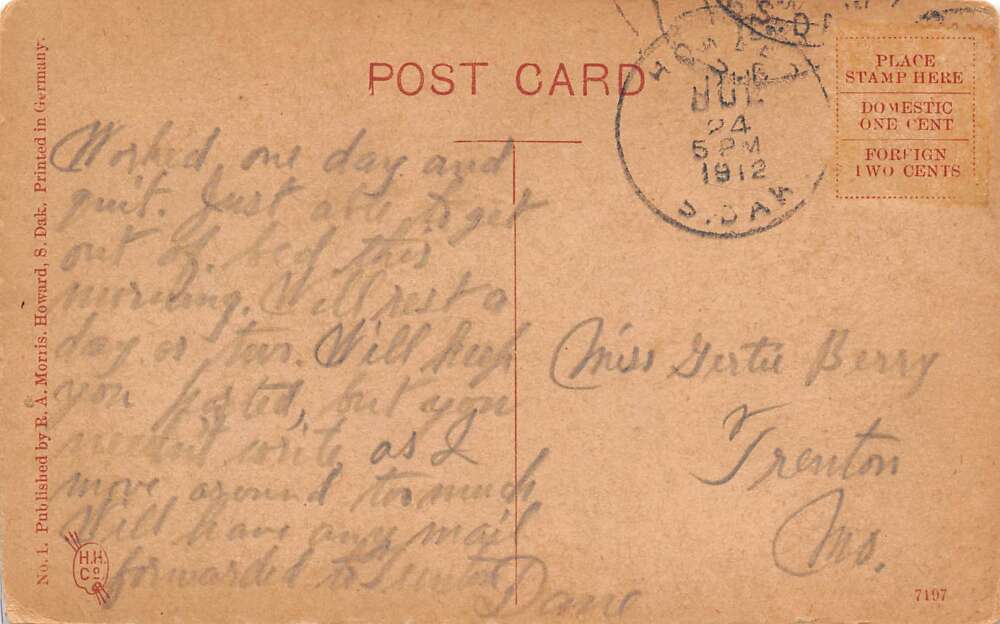 POST CARD
PLACE
STAMP HERE
DOMESTIC
ONE CENT
FOREIGN
TWO CENTS
JUL
24
5 PM
1912
S. DAK
Worked one day and
quit. Just able to get
out of bed this
morning. Will rest a
day or two. Will keep
you posted, but you
needn't write as I
move around too much
Will have any mail
forwarded to
Dane
Miss Gertie Berry
Trenton
Mo.
No. 1. Published by R. A. Morris, Howard, S. Dak. Printed in Germany.
H.H.
Co
7197